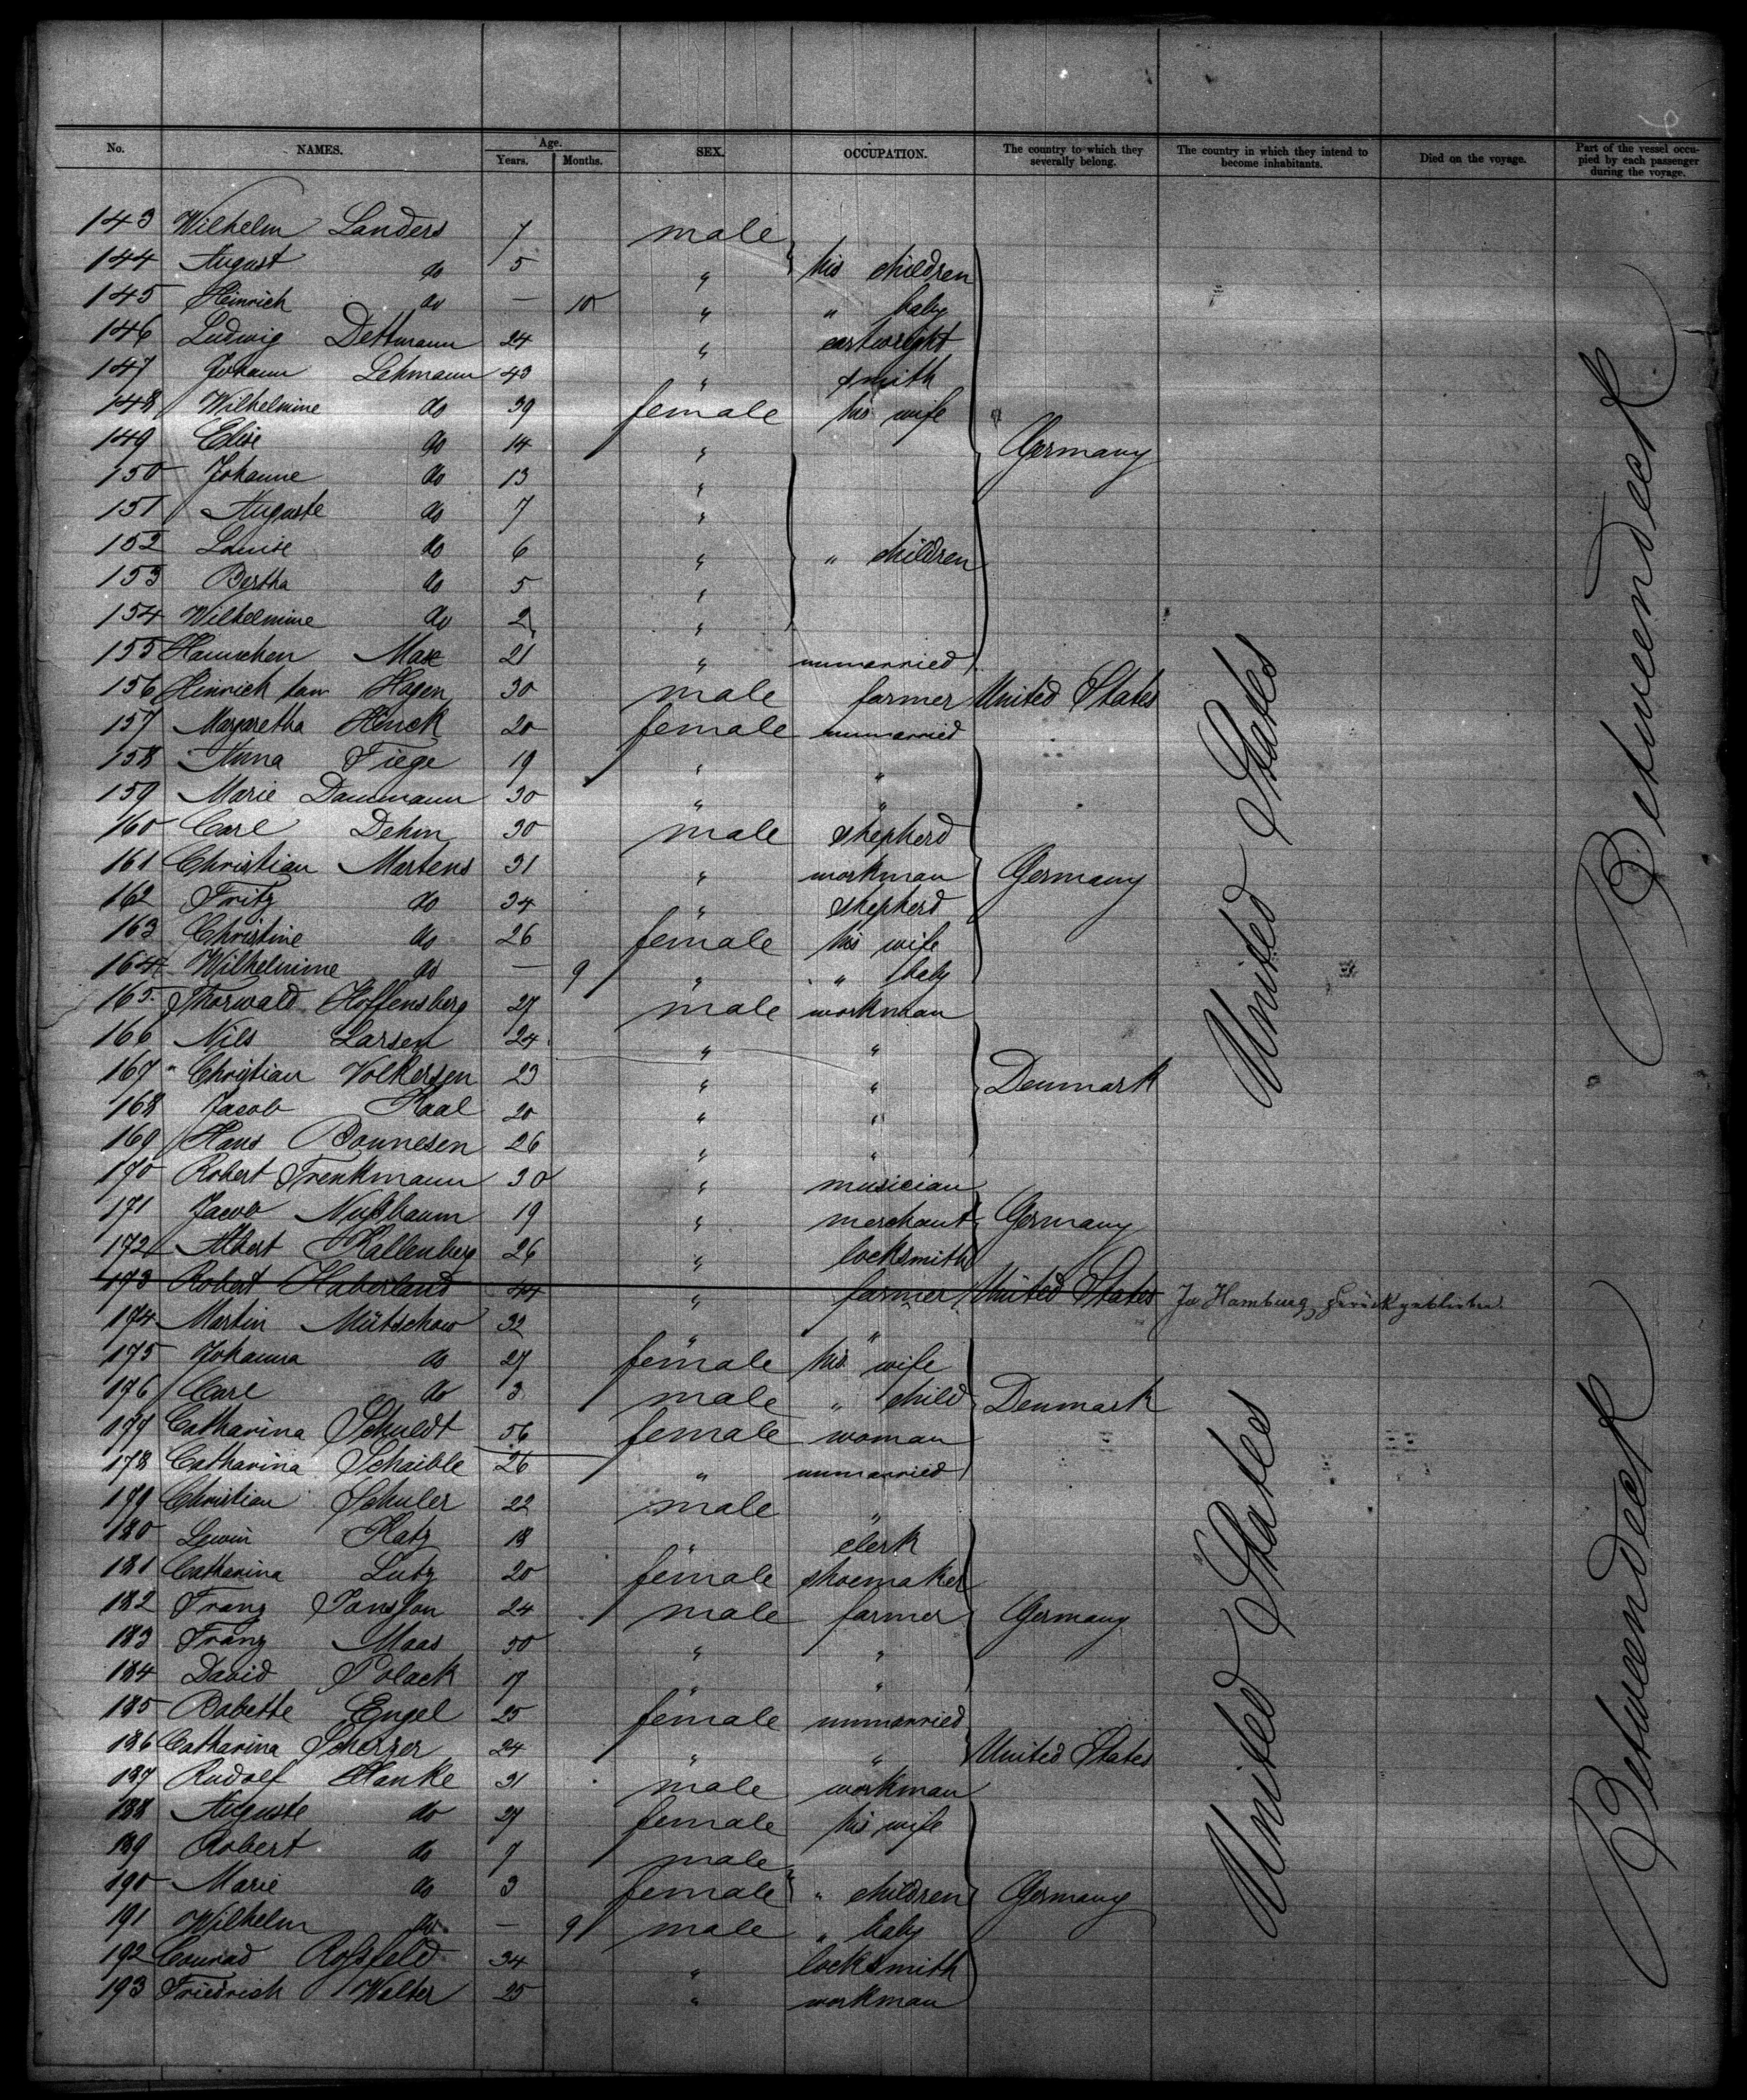 6
No. NAMES. Age. Years. Months. SEX. OCCUPATION. The country to which they severally belong. The country in which they intend to become inhabitants. Died on the voyage. Part of the vessel occupied by each passenger during the voyage.
143 Wilhelm Landers 7 male
144 August do 5 " his children
145 Heinrich do — 10 " " baby
146 Ludwig Dettmann 24 " cartwright
147 Johann Lehmann 43 " smith
148 Wilhelmine do 39 female his wife
149 Elise do 14 " Germany
150 Johanne do 13 "
151 Auguste do 7 "
152 Louise do 6 " " children
153 Bertha do 5 "
154 Wilhelmine do 2 "
155 Hannchen Max 21 " unmarried
156 Hinrich tam Hagen 30 male farmer United States
157 Margaretha Hinck 20 female unmarried
158 Anna Tiege 19 " "
159 Marie Dammann 30 " "
160 Carl Dehm 30 male shepherd
161 Christian Martens 31 " workman Germany
162 Fritz do 34 " shepherd
163 Christine do 26 female his wife
164 Wilhelmine do — 9 " " baby
165 Thorwald Hoffensberg 27 male workman
166 Nils Larsen 24 " "
167 Christian Volkersen 23 " " Denmark
168 Jacob Kaal 20 " "
169 Hans Bonnesen 26 " "
170 Robert Trenkmann 30 " musician
171 Jacob Nußbaum 19 " merchant Germany
172 Albert Kallenberg 26 " locksmith
173 Robert Haberland 44 " farmer United States In Hamburg zurückgeblieben.
174 Martin Mütschow 32 " "
175 Johanna do 27 female his wife
176 Carl do 3 male " child Denmark
177 Catharina Schuldt 56 female woman
178 Catharina Schaible 26 " unmarried
179 Christian Schuler 22 male "
180 Lewin Katz 18 " clerk
181 Catharina Lutz 20 female shoemaker
182 Franz 24 male farmer Germany
183 Franz Maas 50 " "
184 David Polack 17 " "
185 Babette Engel 25 female unmarried
186 Catharina Scherzer 24 " " United States
187 Rudolf Hanke 31 male workman
188 Auguste do 27 female his wife
189 Robert do 7 male
190 Marie do 3 female " children Germany
191 Wilhelm do — 9 male " baby
192 Conrad Roßfeld 34 " locksmith
193 Friedrich Walter 25 " workman
United States
United States
Betweendeck
Betweendeck